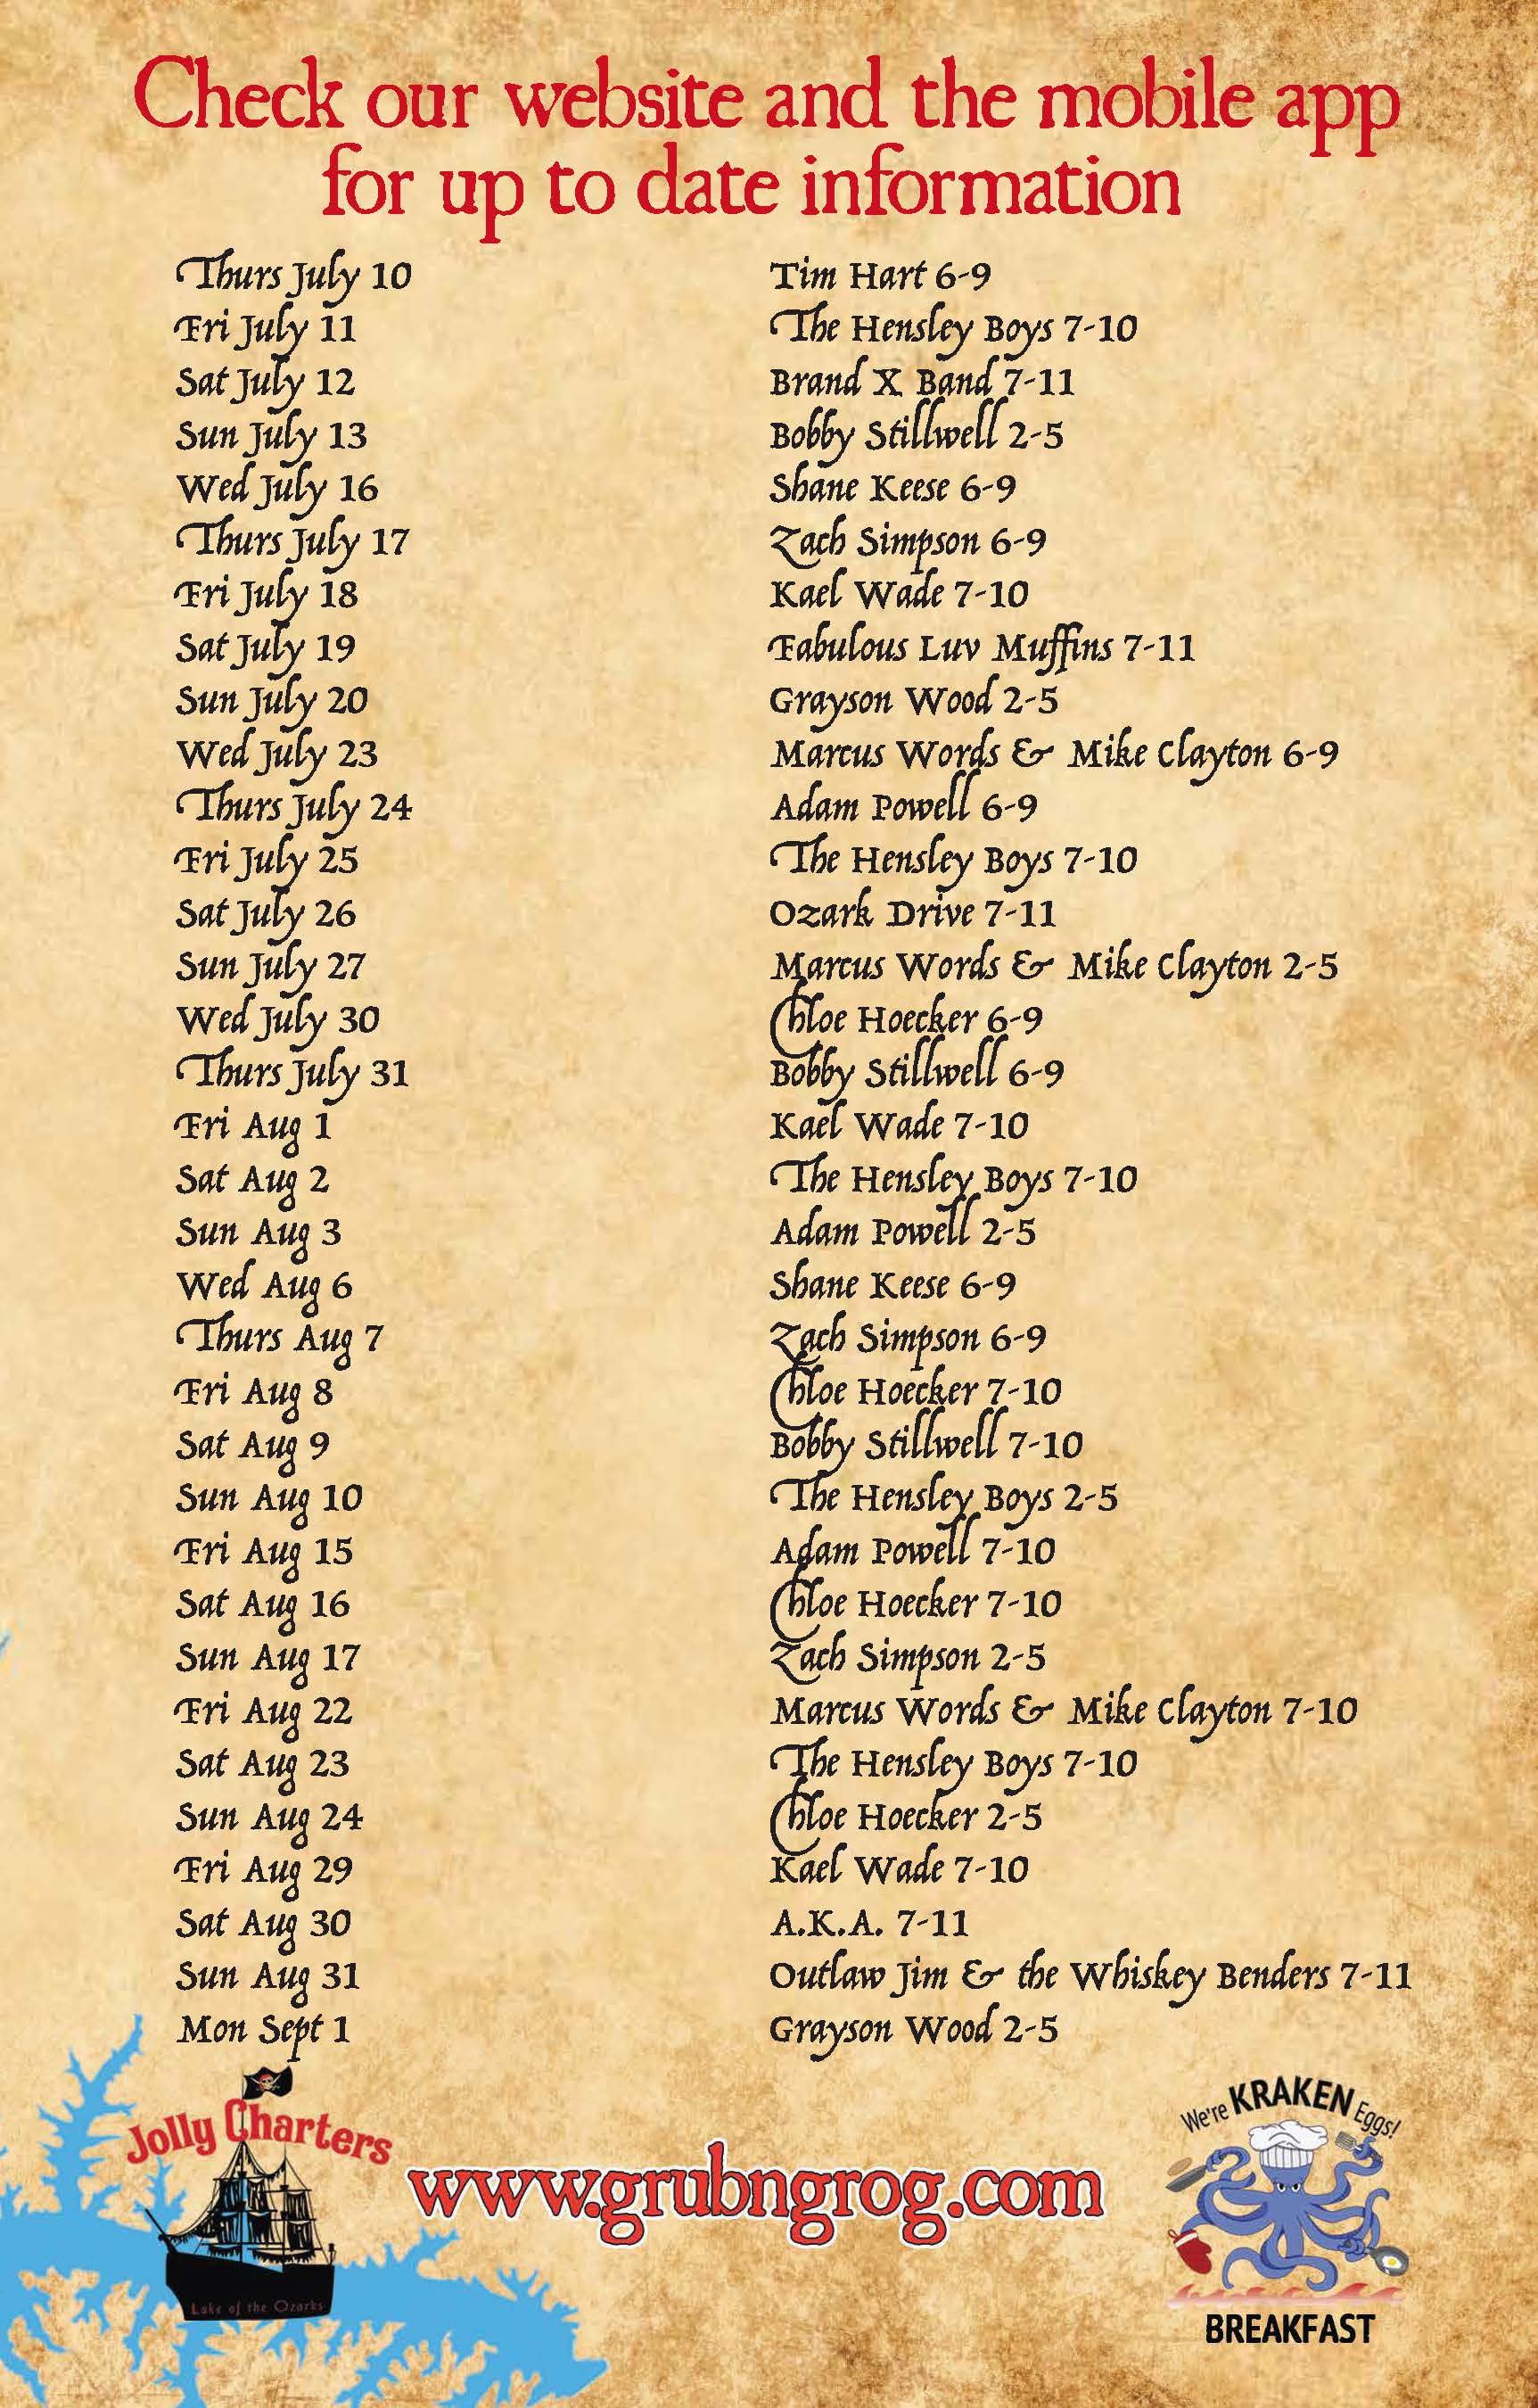 Check our website and the mobile app
for up to date information
Thurs July 10 Tim Hart 6-9
Fri July 11 The Hensley Boys 7-10
Sat July 12 Brand X Band 7-11
Sun July 13 Bobby Stillwell 2-5
Wed July 16 Shane Keese 6-9
Thurs July 17 Zach Simpson 6-9
Fri July 18 Kael Wade 7-10
Sat July 19 Fabulous Luv Muffins 7-11
Sun July 20 Grayson Wood 2-5
Wed July 23 Marcus Words & Mike Clayton 6-9
Thurs July 24 Adam Powell 6-9
Fri July 25 The Hensley Boys 7-10
Sat July 26 Ozark Drive 7-11
Sun July 27 Marcus Words & Mike Clayton 2-5
Wed July 30 Chloe Hoecker 6-9
Thurs July 31 Bobby Stillwell 6-9
Fri Aug 1 Kael Wade 7-10
Sat Aug 2 The Hensley Boys 7-10
Sun Aug 3 Adam Powell 2-5
Wed Aug 6 Shane Keese 6-9
Thurs Aug 7 Zach Simpson 6-9
Fri Aug 8 Chloe Hoecker 7-10
Sat Aug 9 Bobby Stillwell 7-10
Sun Aug 10 The Hensley Boys 2-5
Fri Aug 15 Adam Powell 7-10
Sat Aug 16 Chloe Hoecker 7-10
Sun Aug 17 Zach Simpson 2-5
Fri Aug 22 Marcus Words & Mike Clayton 7-10
Sat Aug 23 The Hensley Boys 7-10
Sun Aug 24 Chloe Hoecker 2-5
Fri Aug 29 Kael Wade 7-10
Sat Aug 30 A.K.A. 7-11
Sun Aug 31 Outlaw Jim & the Whiskey Benders 7-11
Mon Sept 1 Grayson Wood 2-5
Jolly Charters
Lake of the Ozarks
www.grubngrog.com
We're KRAKEN Eggs!
BREAKFAST